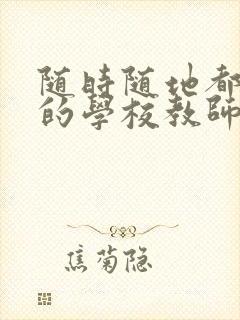 随時随地都
的學校教師
焦菊隐